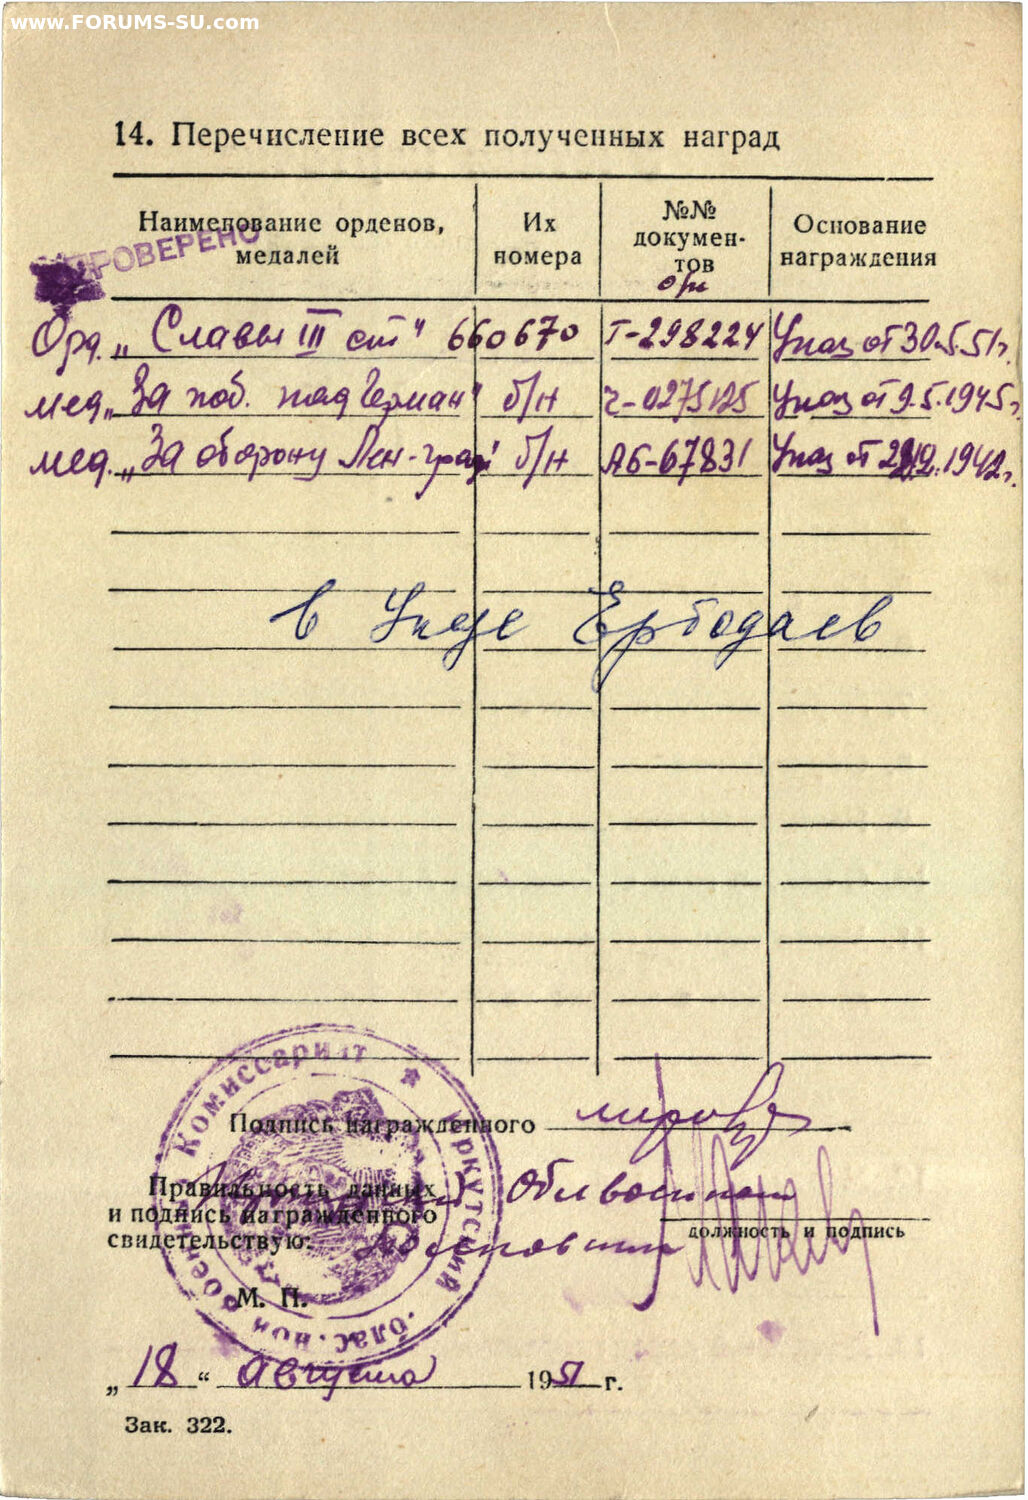 www.FORUMS-SU.com
14. Перечисление всех полученных наград
Наименование орденов, медалей
Их номера
№№ докумен-тов
Основание награждения
ПРОВЕРЕНО
Орд. „Славы III ст" 660670 Т-298224 Указ от 30.5.51г.
мед. „За поб. над Герман" б/н Ч-0275125 Указ от 9.5.1945г.
мед. „За оборону Лен-град" б/н АБ-67831 Указ от 1942г.
в Указе Ербодаев
Военный Комиссариат ★ Иркутский
Подпись награжденного
Правильность данных
и подпись награжденного
свидетельствую:
Облвоенком
должность и подпись
М. П.
„18" Августа 1951 г.
Зак. 322.